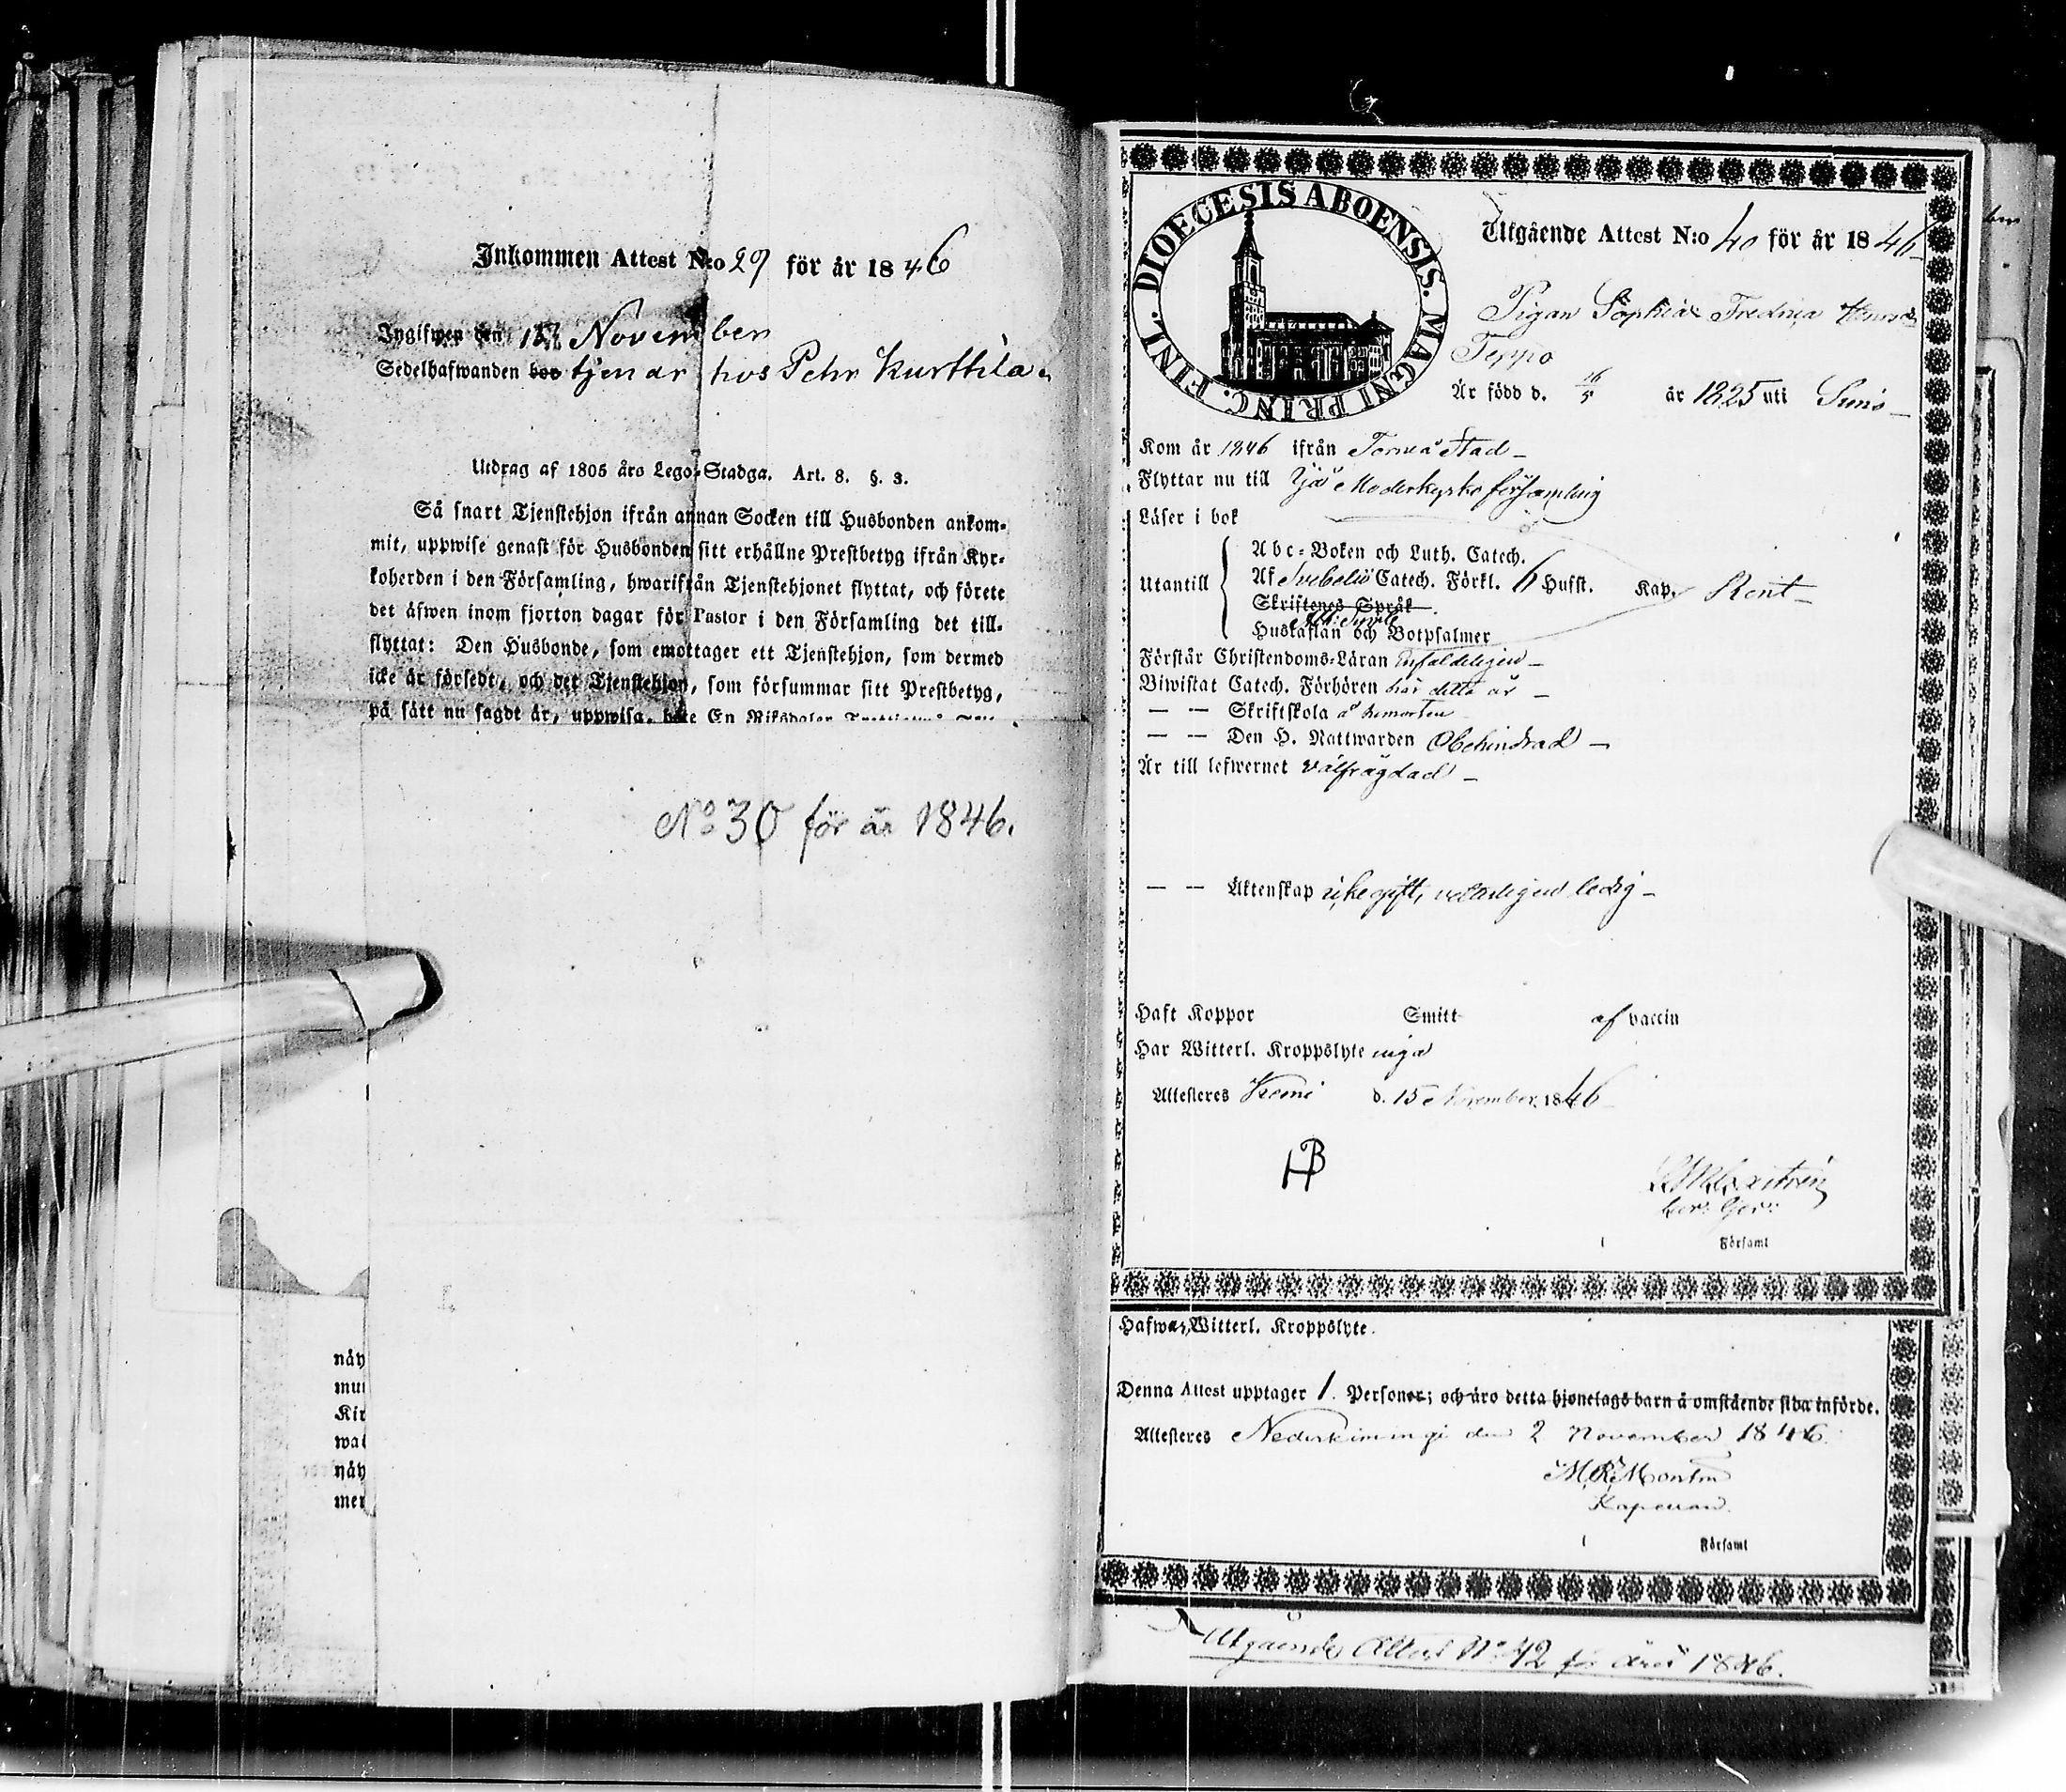 Inkommen Attest N:o 29 för år 1846
Ingifwen den November
Sedelhafwanden hos tjenar hos Pehr Kurttila
Utdrag af 1805 års Lego-Stadga. Art. 8. §. 3.
Så snart Tjenstehjon ifrån annan Socken till Husbonden ankom-
mit, uppwise genast för Husbonden sitt erhållne Prestbetyg ifrån Kyr-
koherden i den Församling, hwarifrån Tjenstehjonet flyttat, och förete
det äfwen inom fjorton dagar för Pastor i den Församling det till-
flyttat: Den Husbonde, som emottager ett Tjenstehjon, som dermed
icke är försedt, och det Tjenstehjon, som försummar sitt Prestbetyg,
på sätt nu sagdt är, uppwisa, böte En Riksdaler
No 30 för år 1846.
näh
mu
Kir
wa
näh
mer
DIOECESIS ABOENSIS. MAGNI PRINC. FINL.
Utgående Attest N:o 40 för år 1846
Pigan Sophia Fredrica
Teppo
Är född d. 16/5 år 1825 uti Simo
Kom år 1846 ifrån Torneå Stad
Flyttar nu till Ijo Moderkyrko församling
Läser i bok
Abc-Boken och Luth. Catech.
Utantill Af Svebelii Catech. Förkl. 6 Hufst. Kap. Rent
Skriftenes Språk
Ath: Symb
Hustaflan och Botpsalmer
Förstår Christendoms-Läran Enfaldeligen
Biwistat Catech. Förhören här detta år
— — Skriftskola å hemorten
— — Den H. Nattwarden Obehindrad
Är till lefwernet välfrägdad
— — Äktenskap icke gift, veterligen ledig
Haft Koppor Smitt af vaccin
Har Witterl. Kroppslyte inga
Attesteres Kemi d. 15 November 1846
HB
Församl
Hafwa Witterl. Kroppslyte.
Denna Attest upptager 1. Personer; och äro detta hjonelags barn å omstående sida införde.
Attesteres Nederkiminge den 2 November 1846.
M. R. Montin
Kapellan
Församl
Utgående Attest No 42 för året 1846.